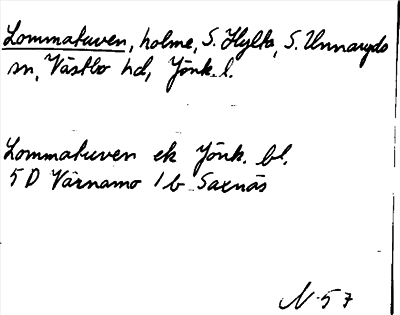 Lommakuven, holme, S. Hylte, S. Unnaryds
sn, Västbo hd, Jönk. l.
Lommakuven ek Jönk. bl.
5 D Värnamo 1 b Saxnäs
N 57